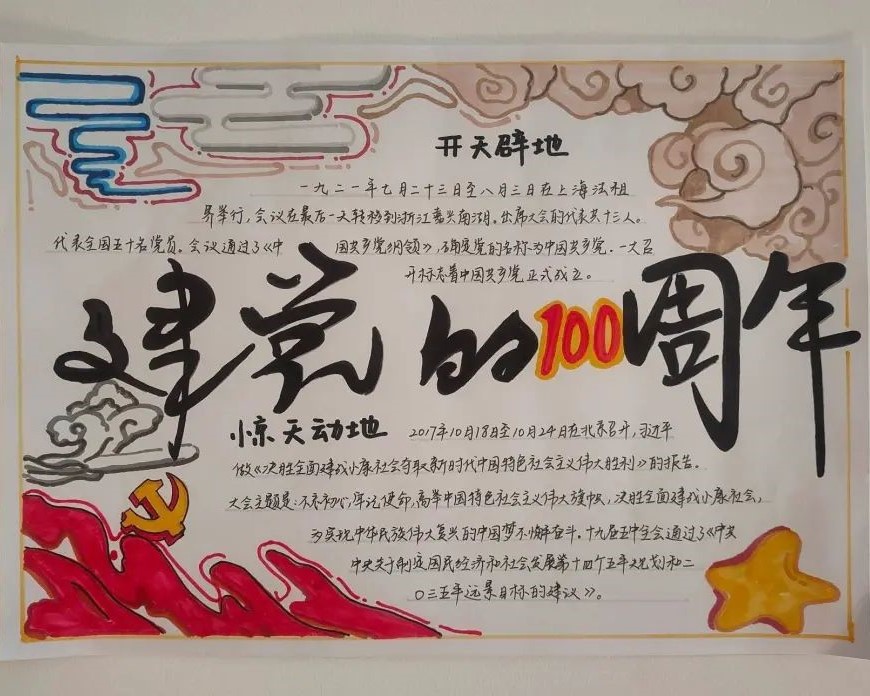 开天辟地
一九二一年七月二十三日至八月三日在上海法租
界举行,会议在最后一天转移到浙江嘉兴南湖。出席大会的代表共十三人。
代表全国五十名党员。会议通过了《中国共产党纲领》,确定党的名称为中国共产党。一大召
开标志着中国共产党正式成立。
建党的100周年
惊天动地
2017年10月18日至10月24日在北京召开,习近平
做《决胜全面建成小康社会夺取新时代中国特色社会主义伟大胜利》的报告。
大会主题是:不忘初心,牢记使命,高举中国特色社会主义伟大旗帜,决胜全面建成小康社会,
为实现中华民族伟大复兴的中国梦不懈奋斗。十九届五中全会通过了《中共
中央关于制定国民经济和社会发展第十四个五年规划和二
〇三五年远景目标的建议》。